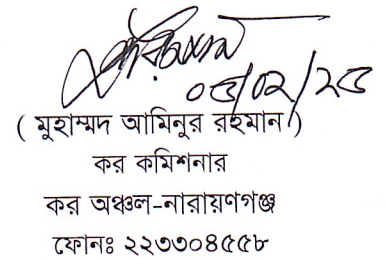 ০৫/০২/২৫
( মুহাম্মদ আমিনুর রহমান )
কর কমিশনার
কর অঞ্চল-নারায়ণগঞ্জ
ফোনঃ ২২৩৩০৪৫৫৮